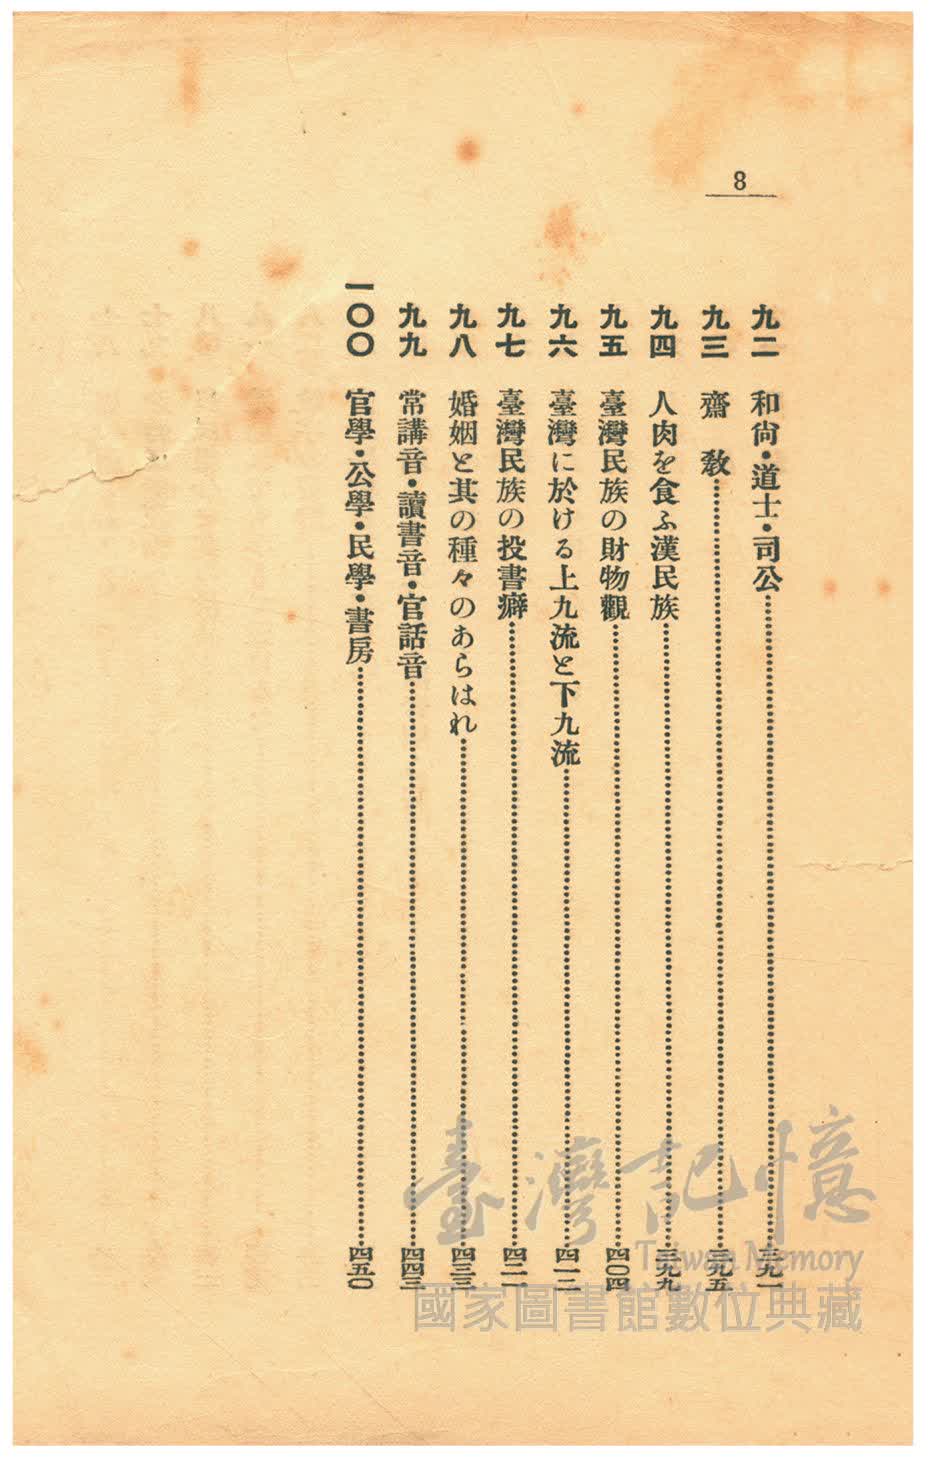 8
九二 和尙・道士・司公……三九一
九三 齋敎……三九五
九四 人肉を食ふ漢民族……三九九
九五 臺灣民族の財物觀……四〇四
九六 臺灣に於ける上九流と下九流……四一二
九七 臺灣民族の投書癖……四二一
九八 婚姻と其の種々のあらはれ……四三三
九九 常講音・讀書音・官話音……四四三
一〇〇 官學・公學・民學・書房……四五〇
臺灣記憶
Taiwan Memory
國家圖書館數位典藏